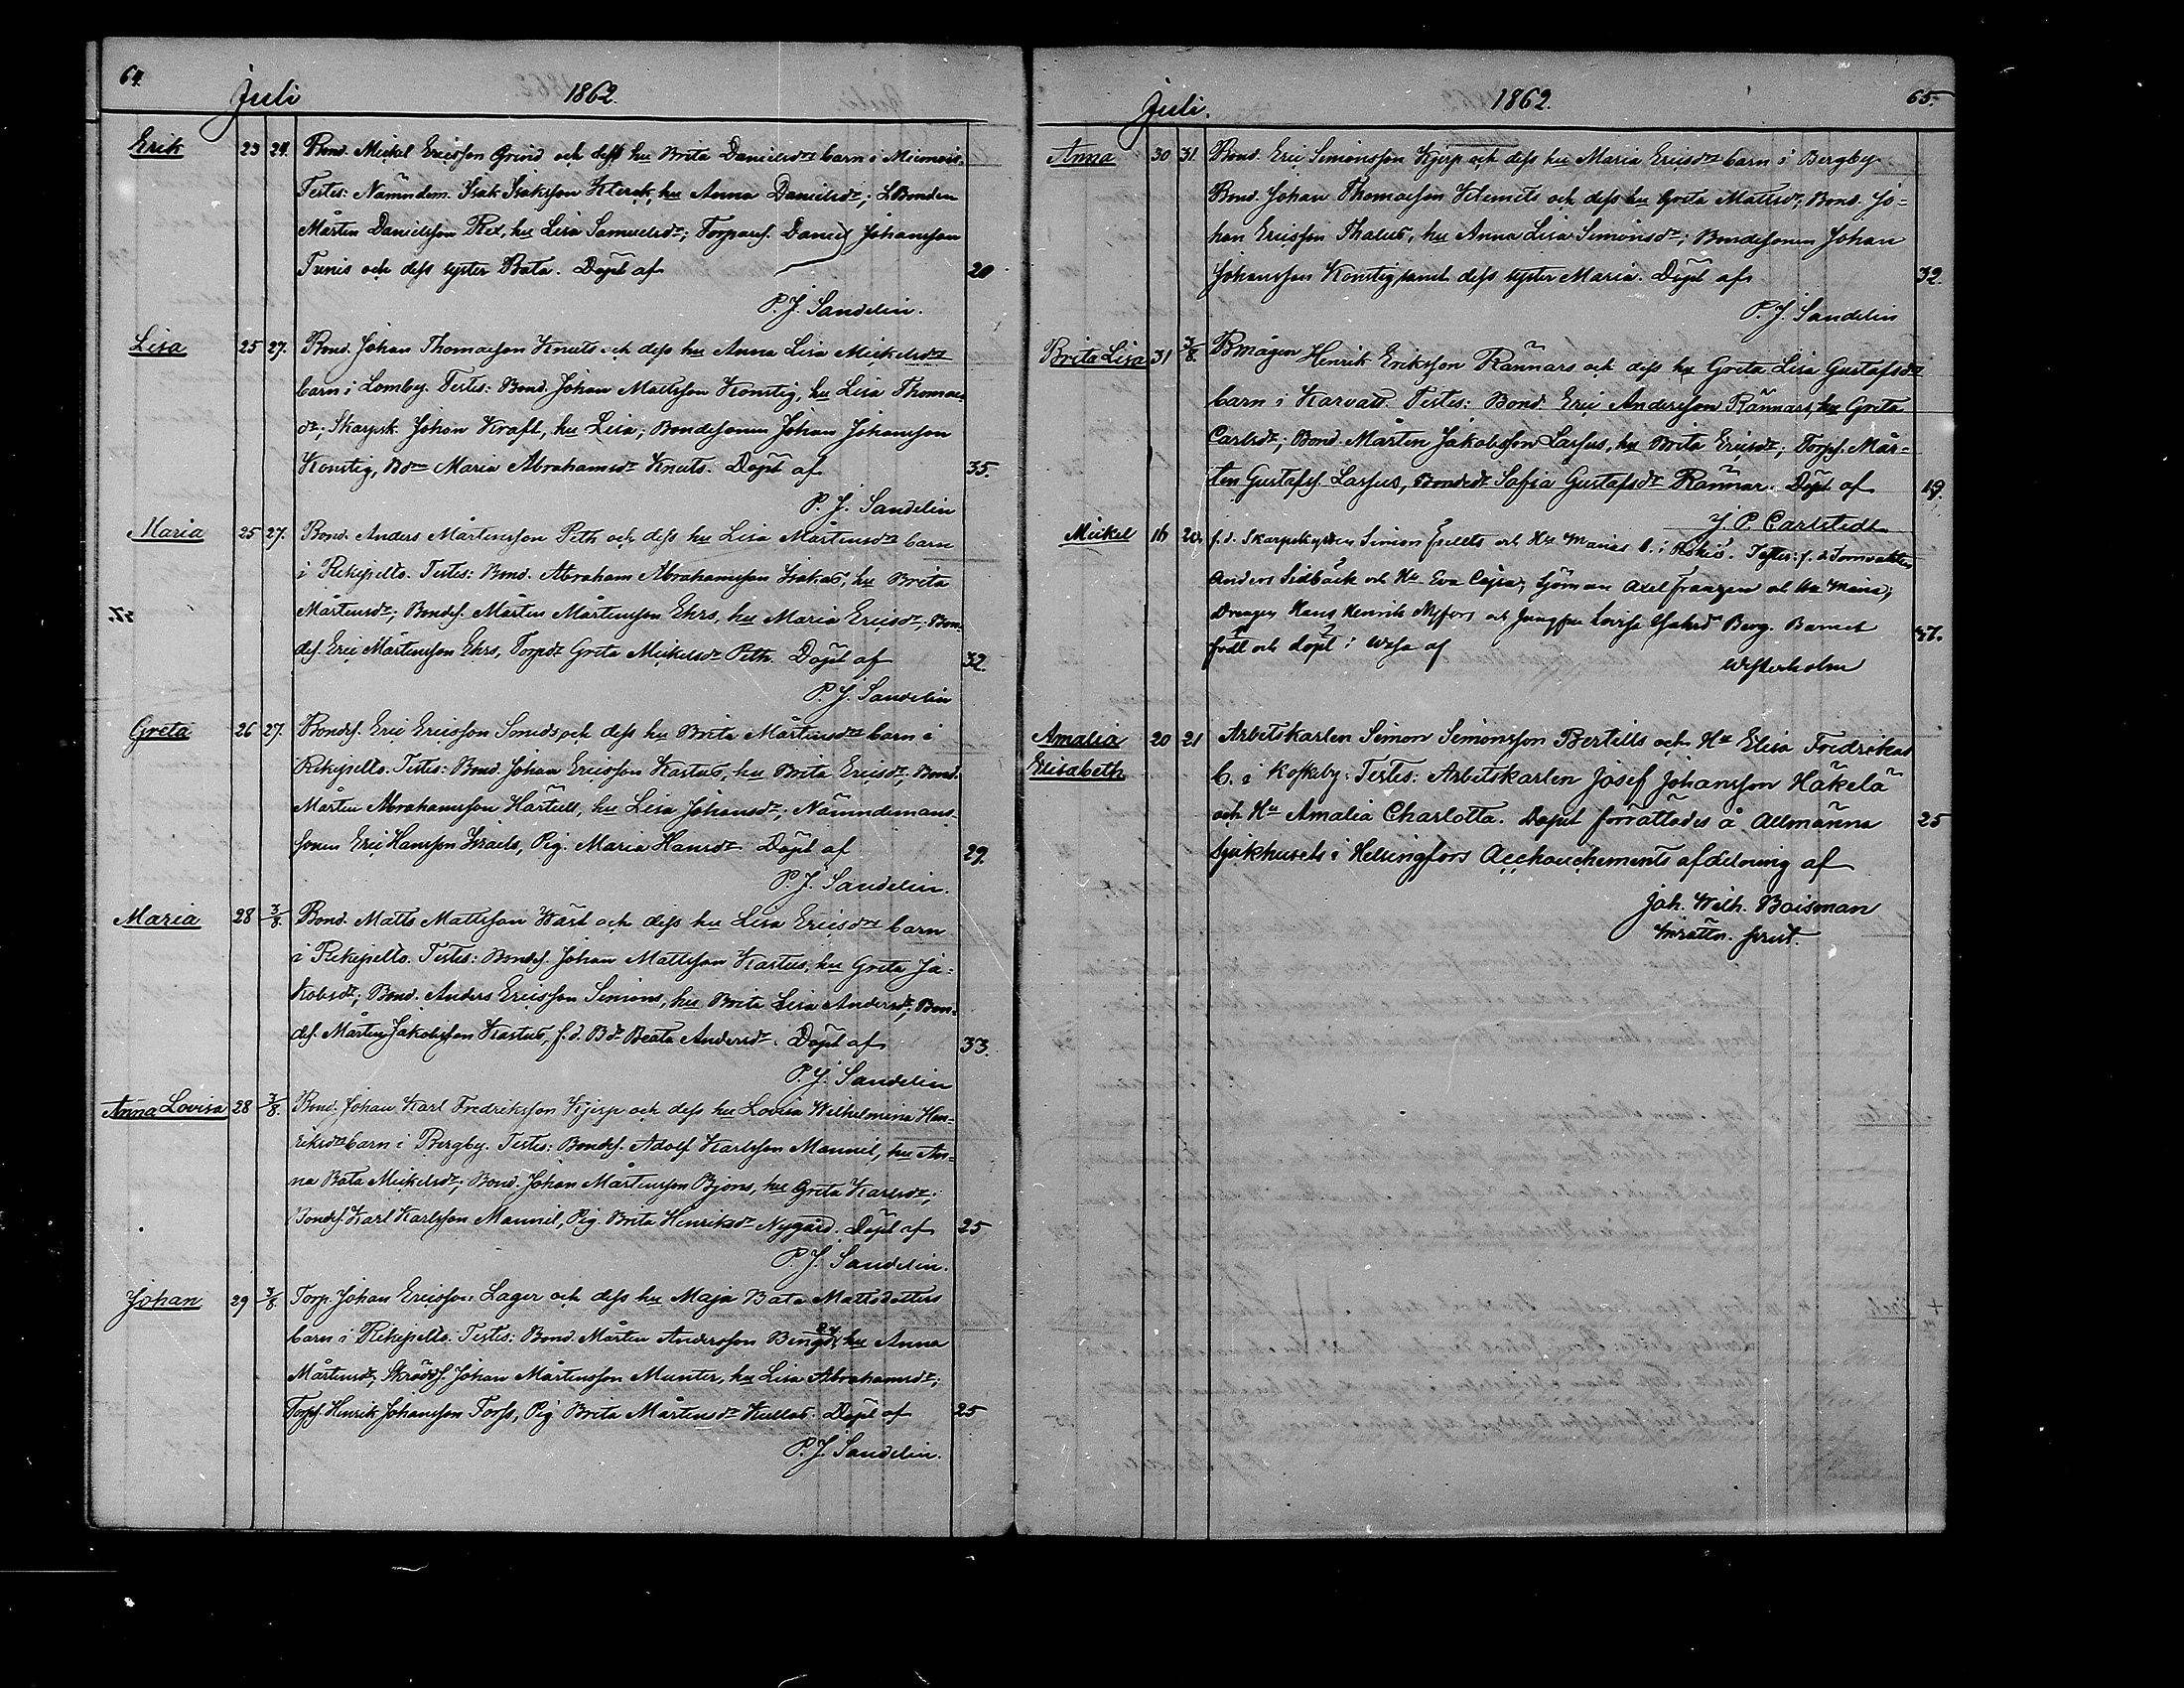 64.
Juli 1862.
Erik 23 24. Bond. Mickel Ericsson Grind och dess hu Brita Danielsdrs barn i Miemois.
Testes: Nämndem. Isak Isaksson Klerck, hu Anna Danielsdr; LBonden
Mårten Danielsson Red, hu Lisa Samuelsdr; Torpares. Daniel Johansson
Tunis och dess syster Bata. Döpt af 20
P. J. Sandelin.
Lisa 25 27. Bond. Johan Thomasson Knuts och dess hu Anna Lisa Mickelsdrs
barn i Lomby. Testes: Bond. Johan Mattsson Konstig, hu Lisa Thomas-
dr; Skarpsk. Johan Kraft, hu Lisa; Bondesonen Johan Johansson
Konstig, Maria Abrahamsdr Knuts. Döpt af 35.
P. J. Sandelin
Maria 25 27. Bond. Anders Mårtensson Peth och dess hu Lisa Mårtensdrs barn
i Rekipelto. Testes: Bond. Abraham Abrahamsson Isakas, hu Brita
Mårtensdr; Bondes. Mårten Mårtensson Ehrs, hu Maria Ericsdr; Bon-
des. Eric Mårtensson Ehrs, Torpdr Greta Mickelsdr Peth. Döpt af 32.
P. J. Sandelin
Greta 26 27. Bondes. Eric Ericsson Smids och dess hu Brita Mårtensdrs barn i
Rekipelto. Testes: Bond. Johan Ericsson Kastus, hu Brita Ericsdr; Bond.
Mårten Abrahamsson Härtull, hu Lisa Johansdr; Nämndemans-
sonen Eric Hansson Israels, Pig. Maria Hansdr. Döpt af 29.
P. J. Sandelin.
Maria 28 3/8. Bond. Matts Mattsson Wäst och dess hu Lisa Ericsdrs barn
i Rekipelto. Testes: Bondes. Johan Mattsson Kastus, hu Greta Ja-
kobsdr; Bond. Anders Ericsson Simons, hu Brita Lisa Andersdr; Bon-
des. Mårten Jakobsson Kastus, f.d. Bdr Beata Andersdr. Döpt af 33.
P. J. Sandelin
Anna Lovisa 28 3/8. Bond. Johan Karl Fredriksson Kjerp och dess hu Lovisa Wilhelmina Hen-
riksdrs barn i Bergby. Testes: Bondes. Adolf Karlsson Mannil, hu An-
na Bata Mickelsdr; Bond. Johan Mårtensson Bjons, hu Greta Karlsdr;
Bondes. Karl Karlsson Mannil, Pig. Brita Henriksdr Nygård. Döpt af 25
P. J. Sandelin.
Johan 29 3/8. Torp. Johan Ericsson Lager och dess hu Maja Bata Mattsdotters
barn i Rekipelto. Testes: Bond. Mårten Andersson hu Anna
Mårtensdr; Skrädd. Johan Mårtensson Munter, hu Lisa Abrahamsdr;
Torps. Henrik Johansson Forss, Pig. Brita Mårtensdr Kullas. Döpt af 25
P. J. Sandelin.
Juli. 1862. 65.
Anna 30 31. Bond. Eric Simonsson Kjerp och dess hu Maria Ericsdrs barn i Bergby.
Bond. Johan Thomasson Klemets och dess hu Greta Mattsdr; Bond. Jo-
han Ericsson Thalus, hu Anna Lisa Simonsdr; Bondesonen Johan
Johansson Konstig samt dess syster Maria. Döpt af 32.
P. J. Sandelin
Brita Lisa 31 3/8. Bmågen Henrik Eriksson Rännars och dess hu Greta Lisa Gustafsdrs
barn i Karvats. Testes: Bond. Eric Andersson Rännars, hu Greta
Carlsdr; Bond. Mårten Jakobsson Lassus, hu Brita Ericsdr; Torps. Mår-
ten Gustafss. Lassus, Bondedr Sofia Gustafsdr Rännar. Döpt af 19.
J. P. Carlstedt
Mickel 16 20. f.d. Skarpskytten Simon och Hu Marias b. i Testes: f.d.
Anders Sidbäck och Hu Eva Cajsa; Sjöman Axel Franzen och Hu Maria;
Drengen Hans Henrik Nyfors och Jungfru Lovisa Berg. Barnet 47.
född och döpt i Wasa af Westerholm
Amalia 20 21 Arbetskarlen Simon Simonsson Bertills och Hu Elisa Fredrikas
Elisabeth b. i Koskeby. Testes: Arbetskarlen Josef Johansson Häkelä
och Hu Amalia Charlotta. Dopet förrättades å Allmänna 25
Sjukhusets i Helsingfors Acchouchements afdelning af
Joh. Wilh. Boisman
prest.